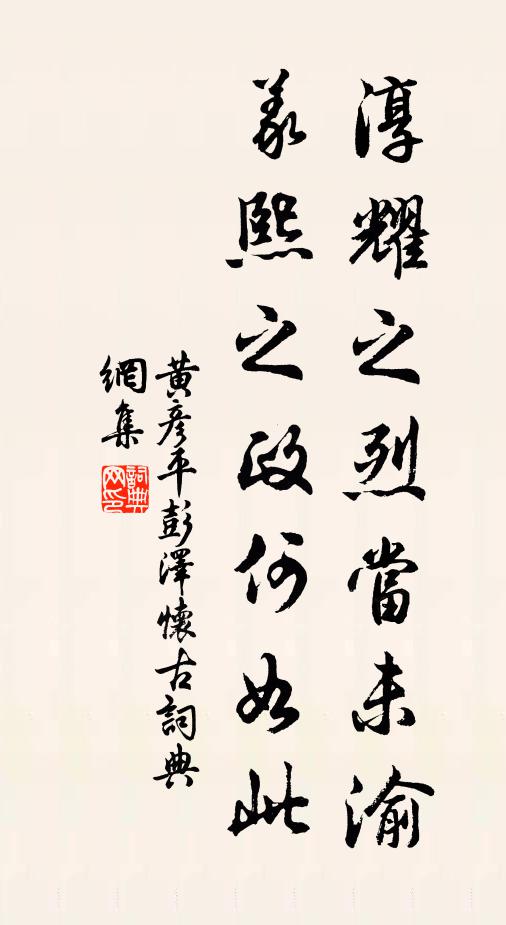 淳耀之烈當未渝
義熙之政何如此
黃彥平彭澤懷古詞典
網集
詞典網印